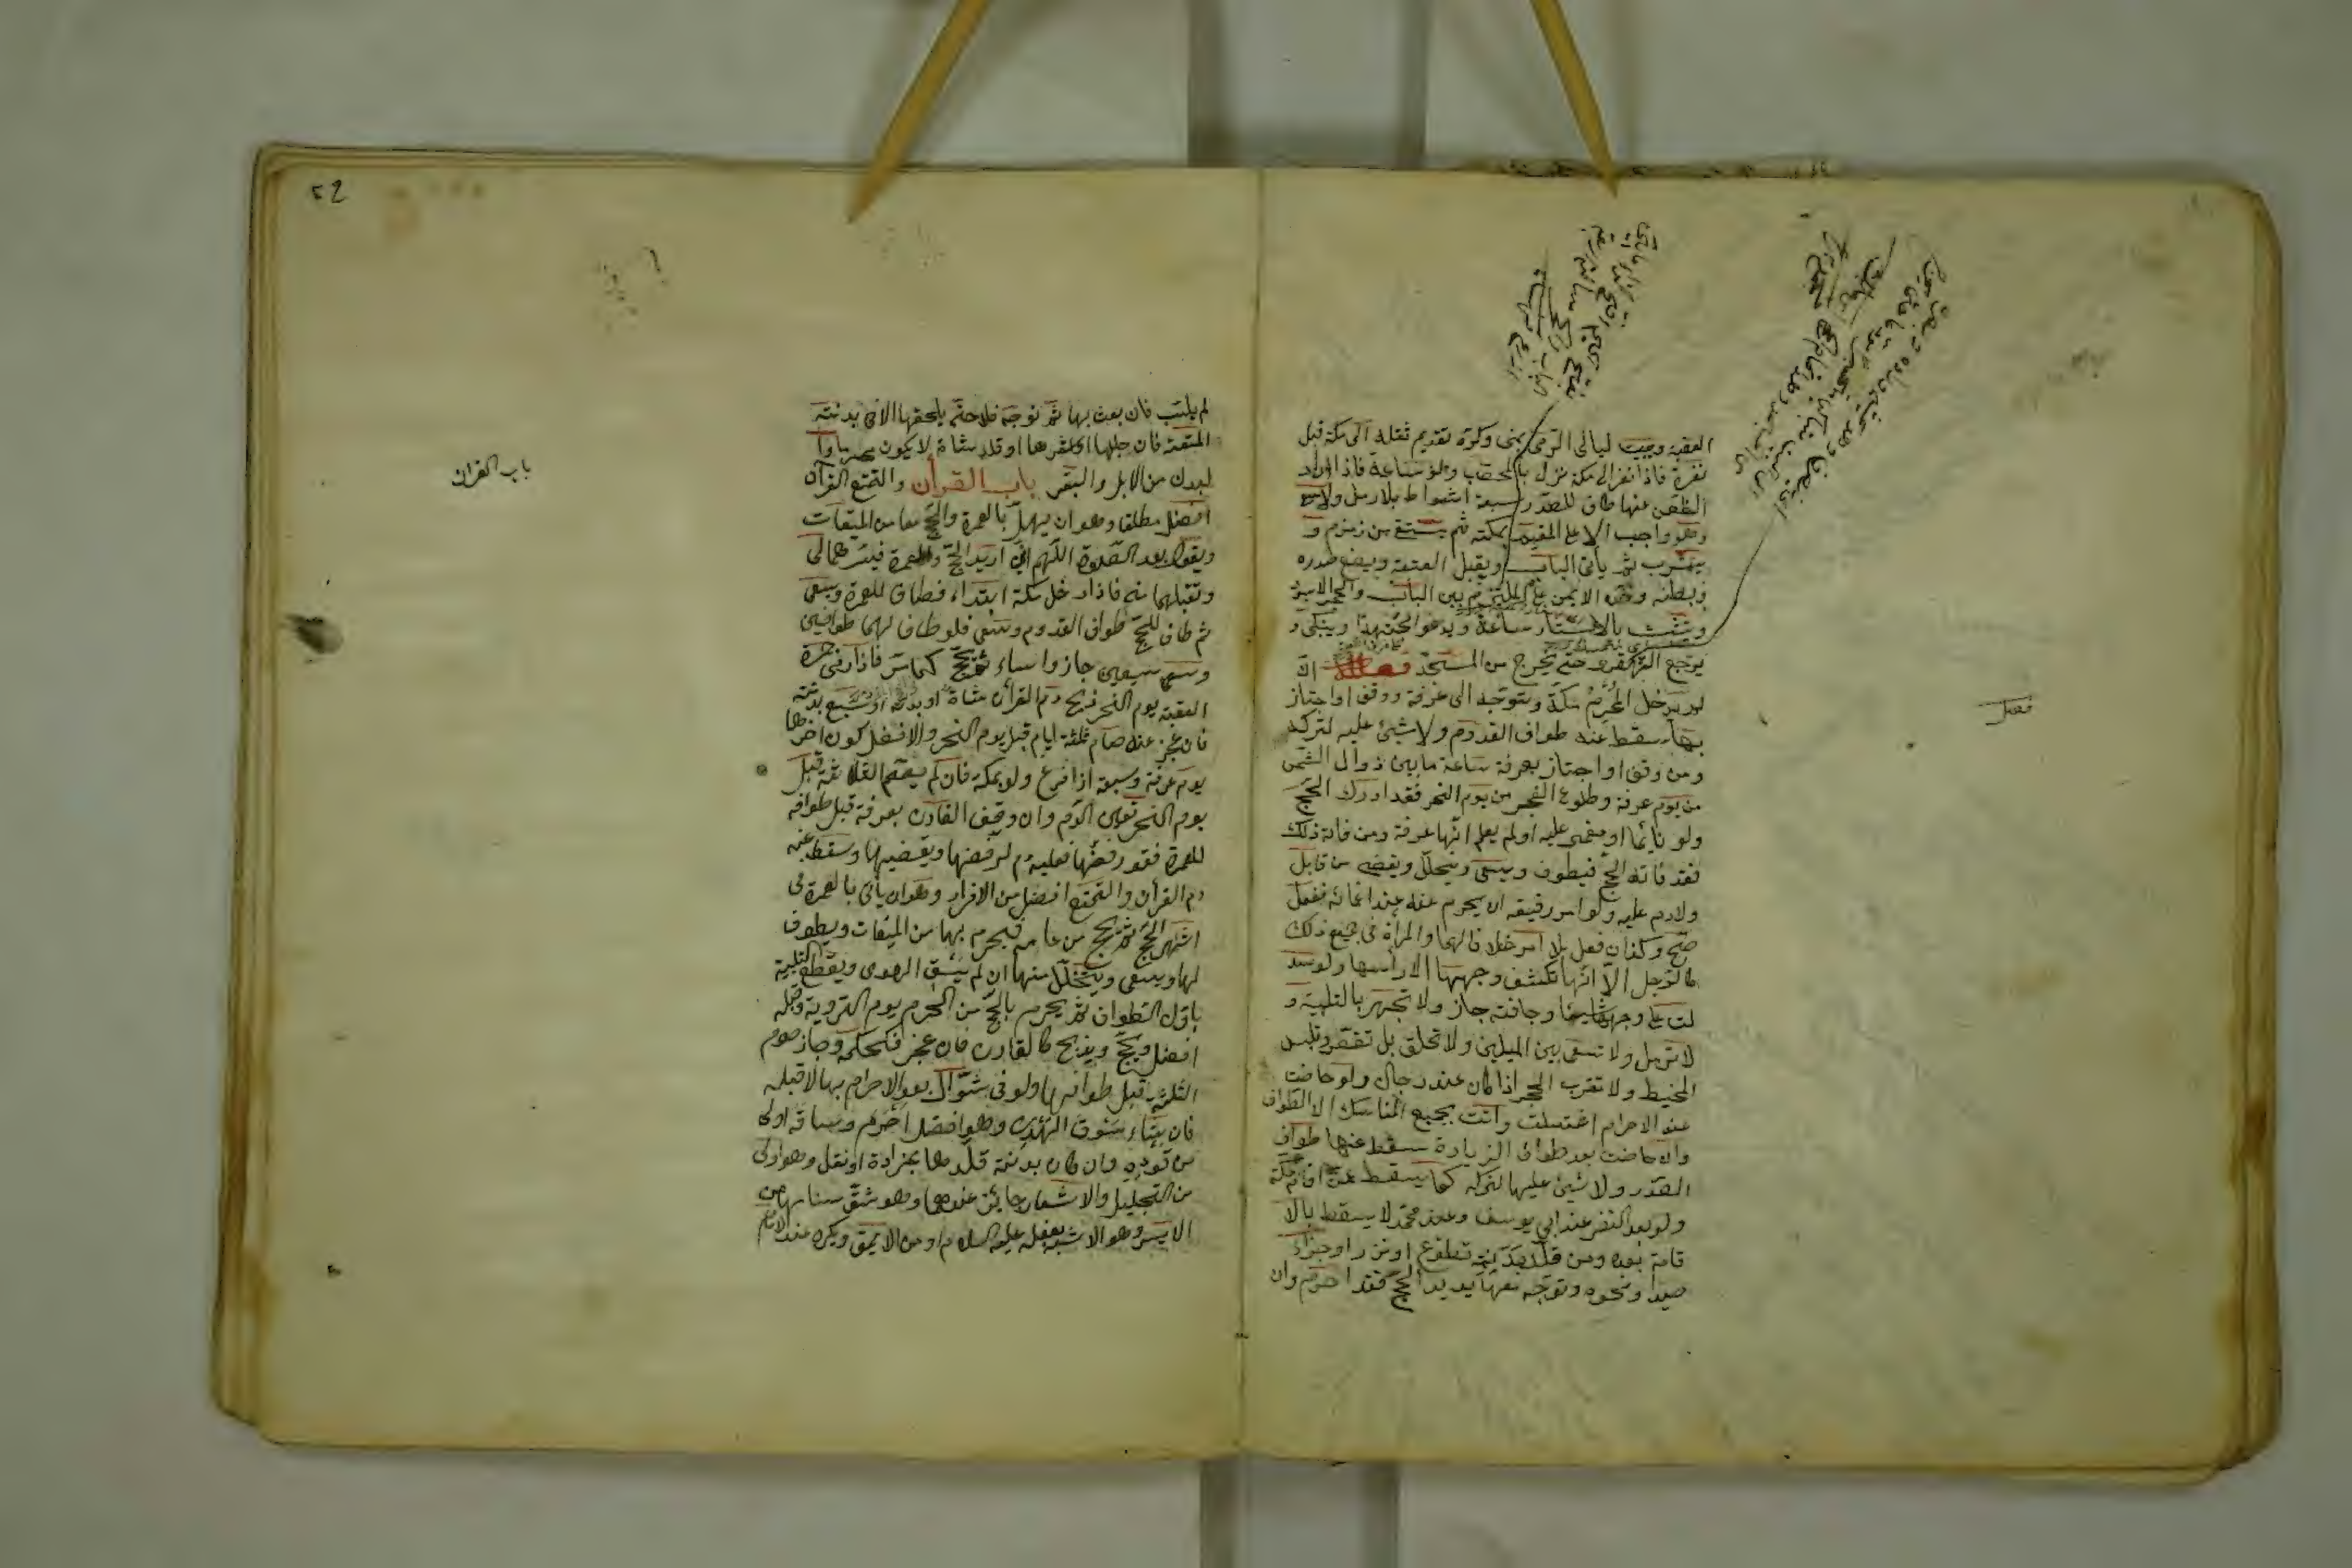 العقبة ويبيت ليالي الرمي بمنى وكره تقديم ثقله الى مكة قبل
نفره فاذا نفر الى مكة نزل بالمحصب ولو ساعة فاذا اراد
الظعن عنها طاف للصدر سبعة اشواط بلا رمل ولا سعى
وهو واجب الا على المقيم بمكة ثم يستقى من زمزم و
يشرب ثم يأتى الباب ويقبل العتبة ويضع صدره
وبطنه وخده الايمن على الملتزم بين الباب والحجر الاسود
ويتشبث بالاستار ساعة ويدعو مجتهدا ويبكى و
يرجع القهقرى حتى يخرج من المسجد فصل ان
لم يدخل المحرم مكة وتوجه الى عرفة ووقف او اجتاز
بها سقط عنه طواف القدوم ولا شئ عليه لتركه
ومن وقف او اجتاز بعرفة ساعة ما بين زوال الشمس
من يوم عرفة وطلوع الفجر من يوم النحر فقد ادرك الحج
ولو نائما او مغمى عليه او لم يعلم انها عرفة ومن فاته ذلك
فقد فاته الحج فيطوف ويسعى ويتحلل ويقضى من قابل
ولا دم عليه ولو امر رفيقه ان يحرم عنه عند اغمائه ففعل
صح وكذا ان فعل بلا امر خلافا لهما والمرأة فى جميع ذلك
كالرجل الا انها تكشف وجهها لا رأسها ولو سد
لت على وجهها شيئا وجافته جاز ولا تجهر بالتلبية و
لا ترمل ولا تسعى بين الميلين ولا تحلق بل تقصر وتلبس
المخيط ولا تقرب الحجر اذا كان عنده رجال ولو حاضت
عند الاحرام اغتسلت واتت بجميع المناسك الا الطواف
وان حاضت بعد طواف الزيارة سقط عنها طواف
الصدر ولا شئ عليها لتركه كما يسقط عمن اقام بمكة
ولو بعد النفر عند ابي يوسف وعند محمد لا يسقط بالا
قامة بعده ومن قلد بدنة تطوع او نذر او جزاء
صيد او نحوه وتوجه معها يريد الحج فقد احرم وان
فصل
52
لم يلب فان بعث بها ثم توجه فلا حتى يلحقها الا فى بدنة
المتعة فان جللها او اشعرها او قلد شاة لا يكون محرما وا
لبدن من الابل والبقر باب القرآن والتمتع القرآن
افضل مطلقا وهو ان يهل بالعمرة والحج معا من الميقات
ويقول بعد الصلوة اللهم اني اريد الحج والعمرة فيسرهما لى
وتقبلهما منى فاذا دخل مكة ابتداء فطاف للعمرة وسعى
ثم طاف للحج طواف القدوم وسعى فلو طاف لهما طوافين
وسعى سعيين جاز واساء ثم يحج كما مر فاذا رمى جمرة
العقبة يوم النحر ذبح دم القرآن شاة او بدنة او سبع بدنة
فان عجز عنه صام ثلثة ايام قبل يوم النحر والافضل كون اخرها
يوم عرفة وسبعة اذا فرغ ولو بمكة فان لم يصم الثلاثة قبل
يوم النحر تعين الدم وان وقف القارن بعرفة قبل طوافه
للعمرة فقد رفضها فعليه دم لرفضها ويقضيها وسقط عنه
دم القرآن والتمتع افضل من الافراد وهو ان يأتى بالعمرة فى
اشهر الحج ثم يحج من عامه فيحرم بها من الميقات ويطوف
لها ويسعى ويتحلل منها ان لم يسق الهدى ويقطع التلبية
باول الطواف ثم يحرم بالحج من الحرم يوم التروية وقبله
افضل ويحج ويذبح كالقارن فان عجز فكحكمه وجاز صوم
الثلثة قبل طوافها ولو فى شوال بعد الاحرام بها لا قبله
فان شاء سوق الهدى وهو افضل احرم وساقه اولى
من قوده وان كان بدنة قلدها بمزادة او نعل وهو اولى
من التجليل والاشعار جائز عندهما وهو شق سنامها من
الايسر وهو الاشبه بفعله عليه السلام او من الايمن ويكره عند الامام
باب القران